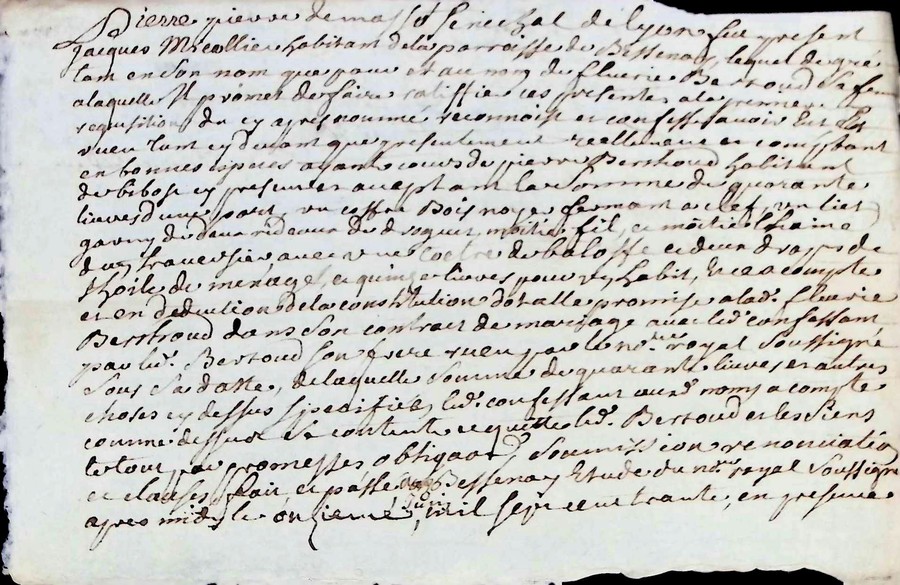 Pierre pierre de masso Senechal de lyon fut present
Jacques Micollier habitant de la parroisse de Bessenay, lequel de gré
tant en son nom que pour et au nom de fleurie Berthoud sa femme
a laquelle Il promet de faire ratiffier ces presentes a la premiere
requisition du cy apres nommé reconnoist et confesse avoir Eu et
receu tant cy devant que presentement reellement et comptant
en bonnes especes ayant cours de pierre Berthoud habitant
de bibost cy present et acceptant la Somme de quarante
livres d'une part, un coffre Bois noyer fermant a clef, un liet
garny de deux rideaux de droguet moitié fil, et moitié laine
d'un traversier avec une coetre de baloffe et deux drapts de
thoile de menage, et quinze livres pour ses habit, Et ce a compte
et en deduction de la constitution dotalle promise a lad. fleurie
Berthoud dans son contract de mariage avec led. confessant
par led. Berthoud son frere receu par le no.re royal soussigné
sous sa datte, de laquelle somme de quarante livres et autres
choses cy dessus specifiées led. confessant aud. noms a compte
comme dessus est content et quitte led. Berthoud et les siens
le tout par promesses obligaõns soumission renonciation
et clauses, fait et passé aud. Bessenay Etude du no.re royal soussigné
apres midy le onzieme Juin, mil sept cent trante, en presence